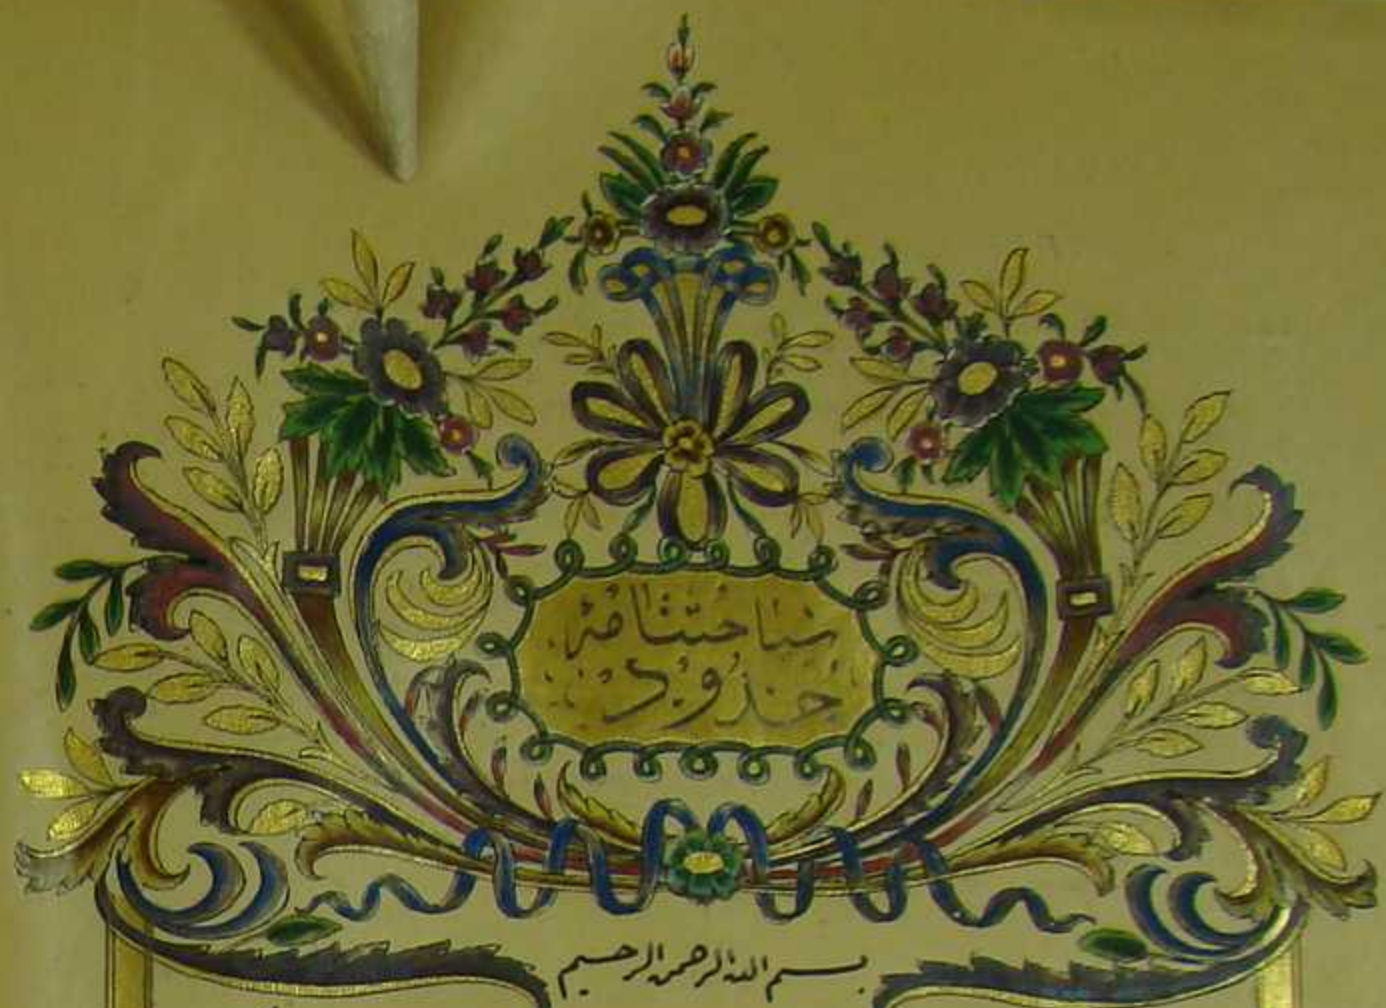 سیاحتنامهٔ
حدود
بسم الله الرحمن الرحيم